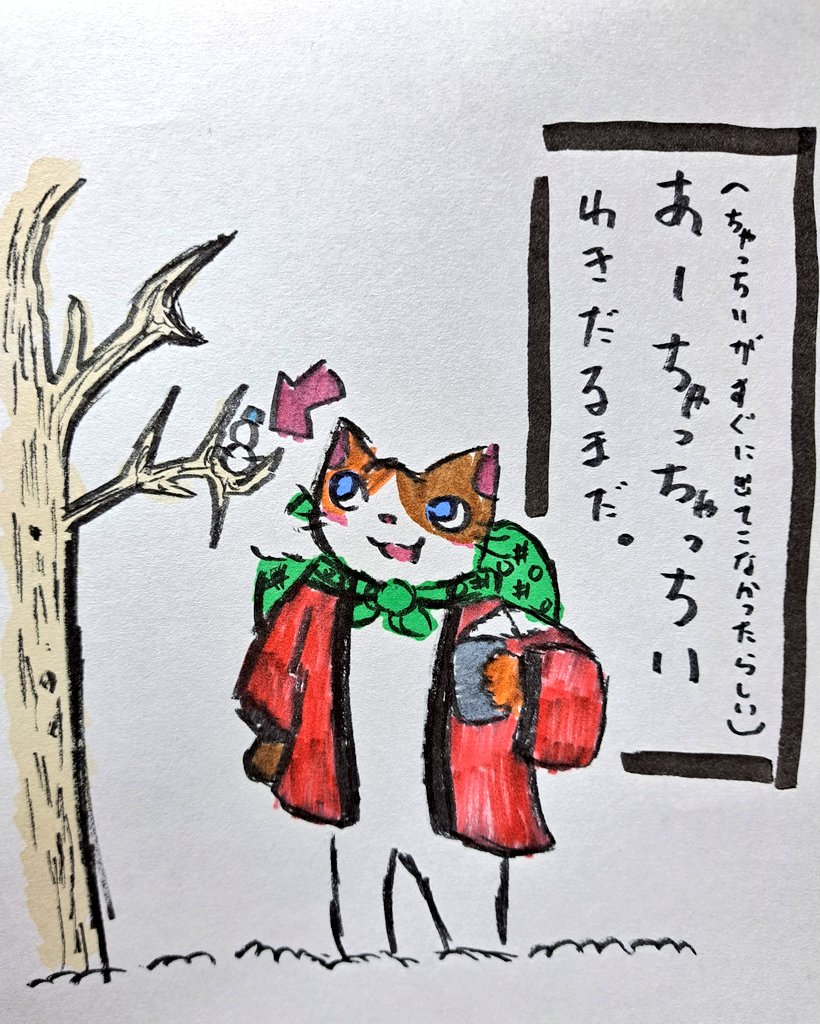 (ちゃっちいがすぐに出てこなかったらしい)
あーちゃっちゃっちい
ゆきだるまだ。